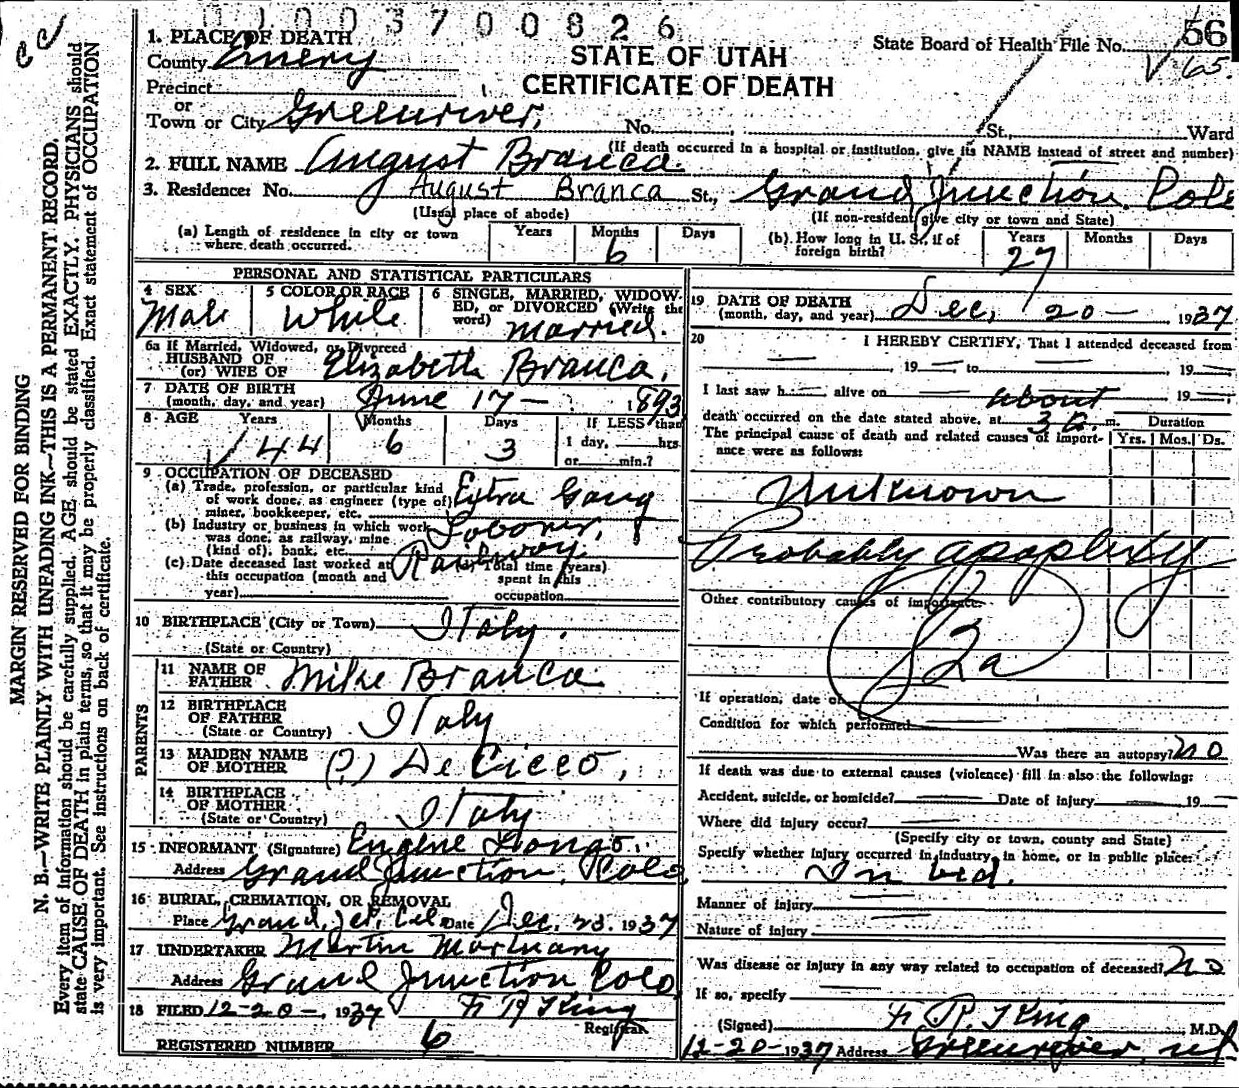 1100 3 7 0 0 8 2 6
56
65
1. PLACE OF DEATH
County Emery
STATE OF UTAH
CERTIFICATE OF DEATH
State Board of Health File No.
Precinct
or
Town or City Greenriver, No. , St., Ward
(If death occurred in a hospital or institution, give its NAME instead of street and number)
2. FULL NAME August Branca.
3. Residence: No. August Branca St., Grand Junction, Colo
(Usual place of abode) (If non-resident give city or town and State)
(a) Length of residence in city or town where death occurred. Years Months 6 Days
(b) How long in U. S., if of foreign birth? Years 27 Months Days
PERSONAL AND STATISTICAL PARTICULARS
4 SEX Male
5 COLOR OR RACE White
6 SINGLE, MARRIED, WIDOWED, or DIVORCED (Write the word) married.
6a If Married, Widowed, or Divorced
HUSBAND OF
(or) WIFE OF Elizabeth Branca.
7 DATE OF BIRTH
(month, day, and year) June 17 - 1893
8 AGE Years 44 Months 6 Days 3 IF LESS than
1 day, hrs.
or min.?
9 OCCUPATION OF DECEASED
(a) Trade, profession, or particular kind of work done, as engineer (type of) miner, bookkeeper, etc. Extra Gang
(b) Industry or business in which work was done, as railway, mine (kind of), bank, etc. Laborer,
Railway.
(c) Date deceased last worked at this occupation (month and year)
Total time (years) spent in this occupation
10 BIRTHPLACE (City or Town) Italy.
(State or Country)
PARENTS
11 NAME OF FATHER Mike Branca
12 BIRTHPLACE OF FATHER (State or Country) Italy
13 MAIDEN NAME OF MOTHER (?) DeCicco,
14 BIRTHPLACE OF MOTHER (State or Country) Italy
15 INFORMANT (Signature) Eugene Longo.
Address Grand Junction, Colo,
16 BURIAL, CREMATION, OR REMOVAL
Place Grand Jct. Col. Date Dec. 23. 1937
17 UNDERTAKER Martin Mortuary
Address Grand Junction Colo,
18 FILED 12-20-, 1937 F. R. King
Registrar.
REGISTERED NUMBER 6
19 DATE OF DEATH
(month, day, and year) Dec, 20 - 1937
20 I HEREBY CERTIFY, That I attended deceased from
— — 19 — to — — 19 —
I last saw h — alive on about 19 —
death occurred on the date stated above, at 3 a. m. Duration
The principal cause of death and related causes of importance were as follows: Yrs. Mos. Ds.
Unknown
Probably apoplexy
Other contributory causes of importance:
82a
If operation, date of
Condition for which performed
Was there an autopsy? no
If death was due to external causes (violence) fill in also the following:
Accident, suicide, or homicide? — Date of injury — 19 —
Where did injury occur? —
(Specify city or town, county and State)
Specify whether injury occurred in industry, in home, or in public place:
In bed.
Manner of injury
Nature of injury
Was disease or injury in any way related to occupation of deceased? no
If so, specify
(Signed) F. R. King M.D.
12-20-1937 Address Greenriver, Ut
MARGIN RESERVED FOR BINDING
N. B.—WRITE PLAINLY WITH UNFADING INK—THIS IS A PERMANENT RECORD.
Every item of information should be carefully supplied. AGE should be stated EXACTLY. PHYSICIANS should
state CAUSE OF DEATH in plain terms, so that it may be properly classified. Exact statement of OCCUPATION
is very important. See instructions on back of certificate.